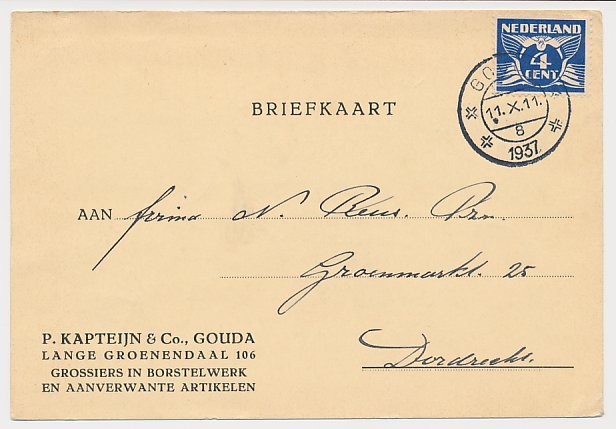 NEDERLAND
4
CENT
GO
11.X.11.
8
1937
BRIEFKAART
AAN firma N. Reus. Bzn.
Groenmarkt. 25
Dordrecht.
P. KAPTEIJN & Co., GOUDA
LANGE GROENENDAAL 106
GROSSIERS IN BORSTELWERK
EN AANVERWANTE ARTIKELEN